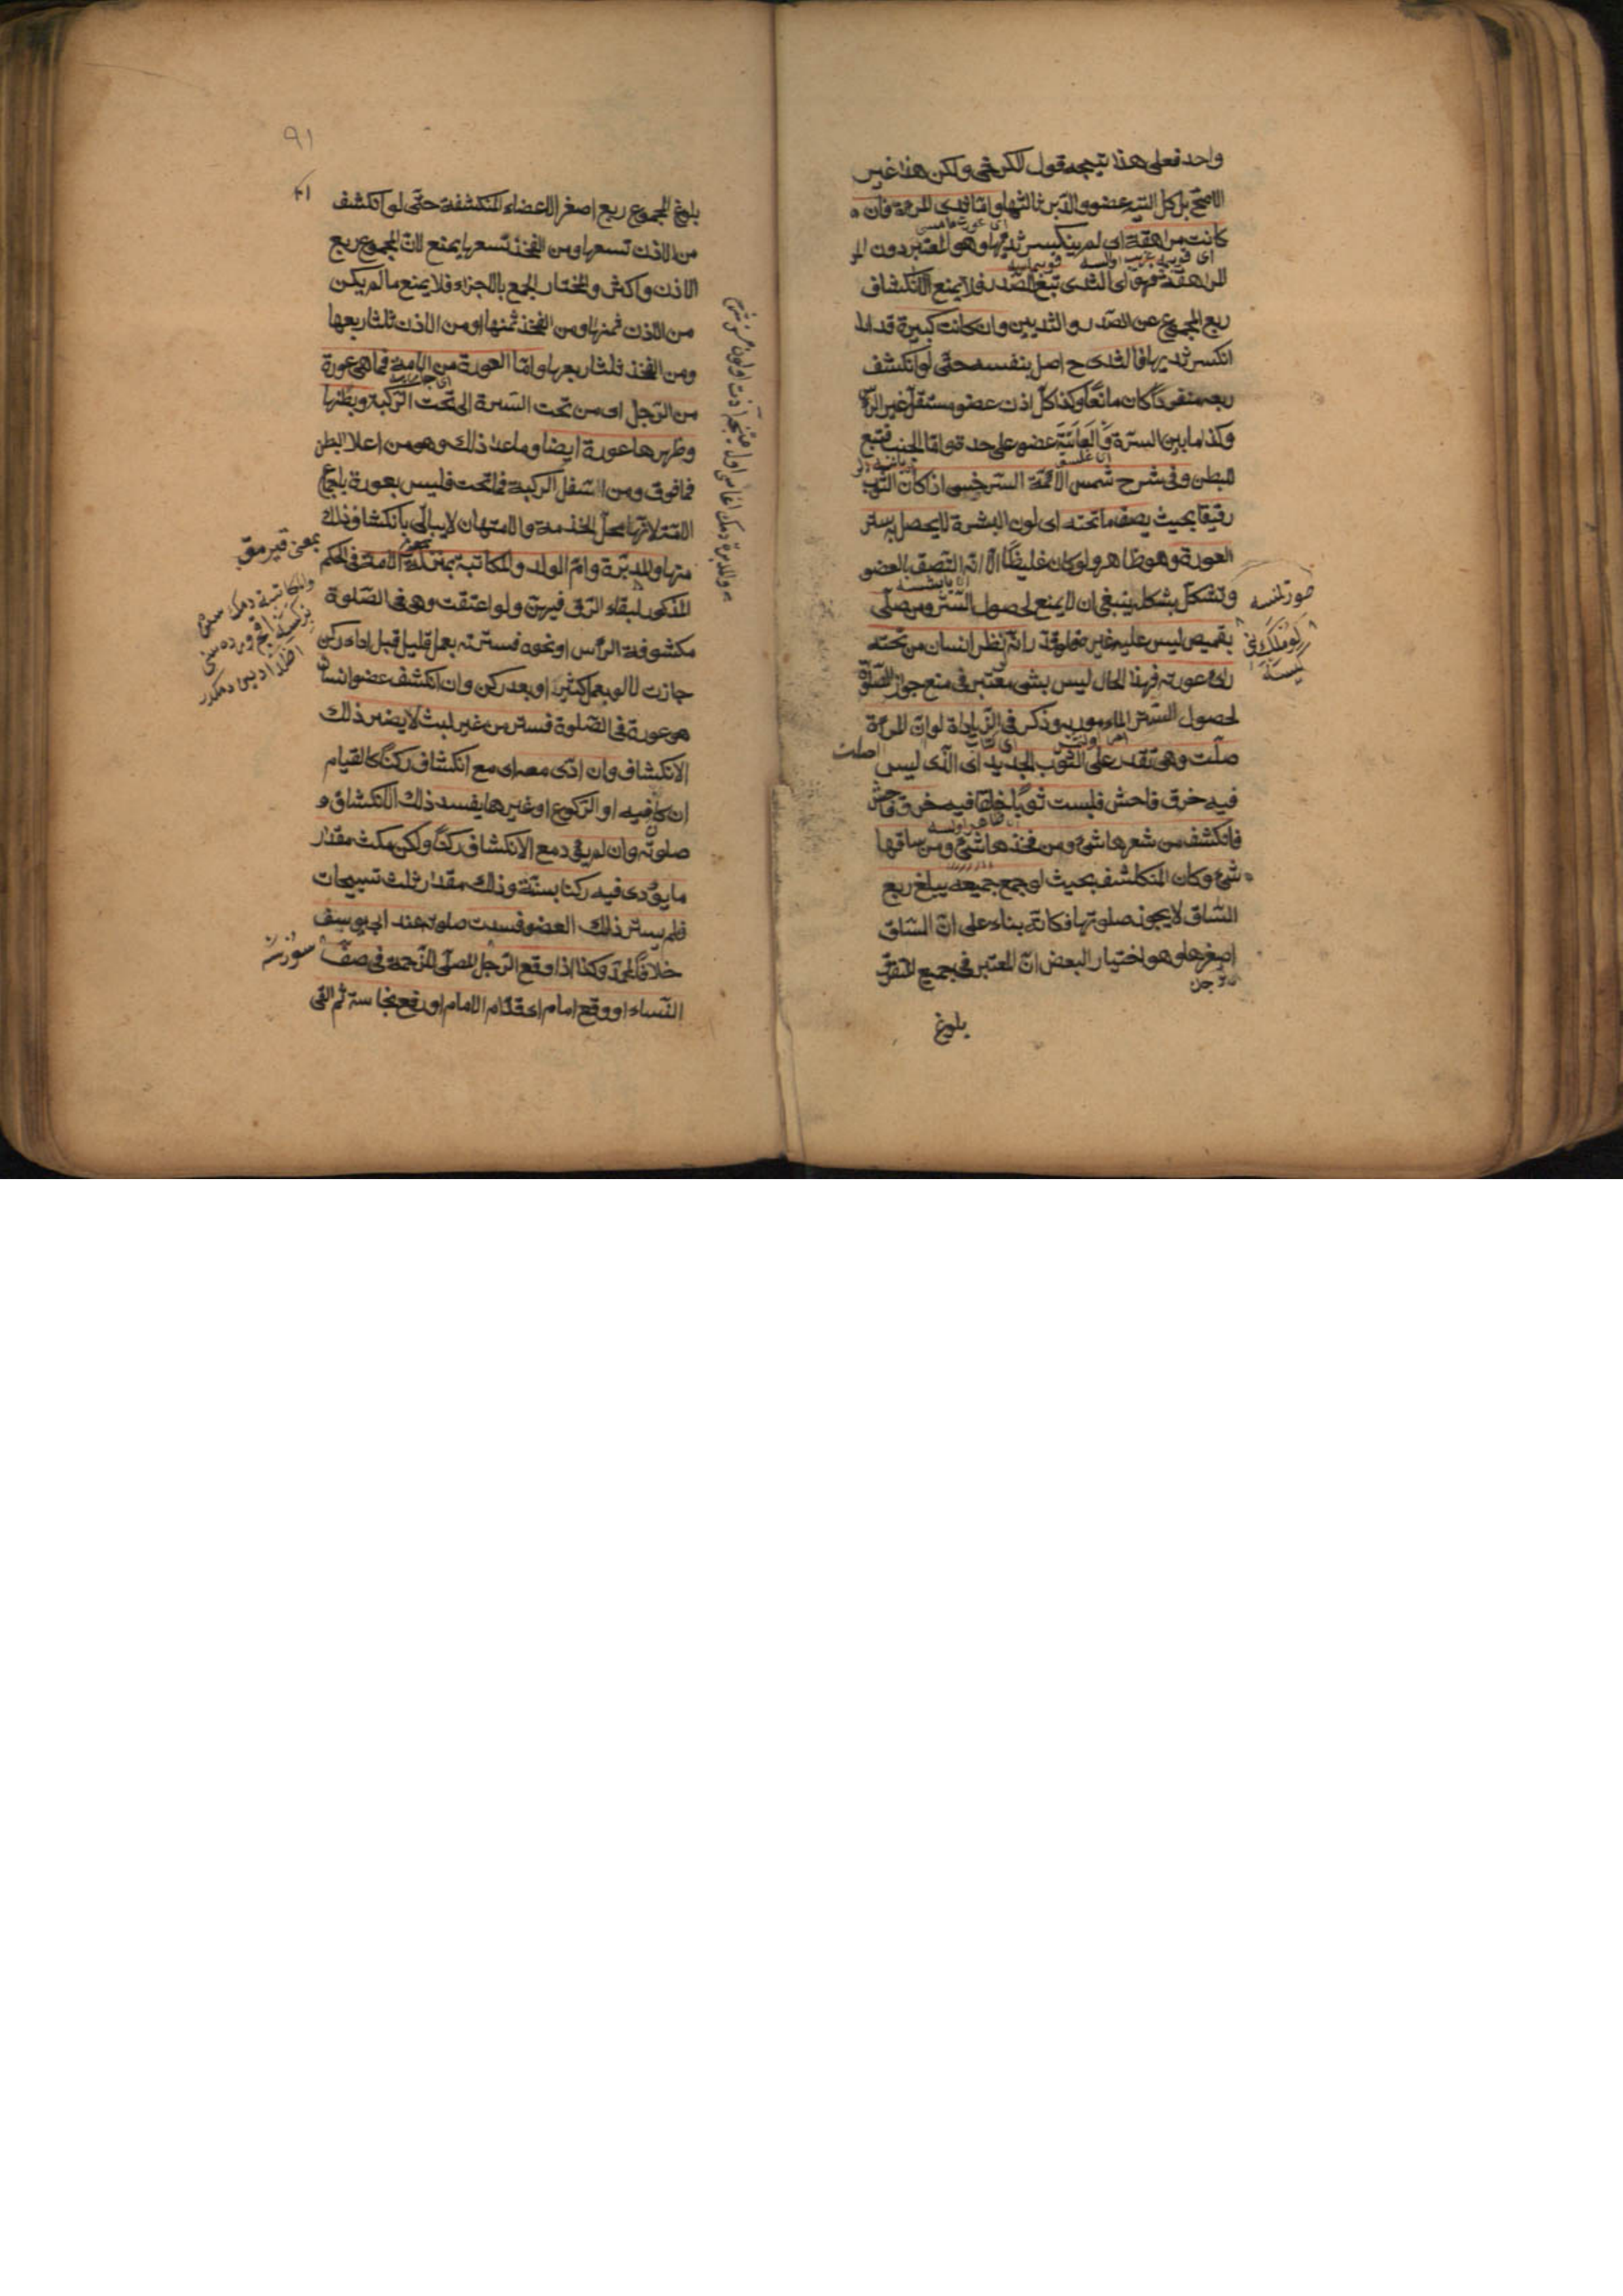 واحد فعلى هذا يتجه قول الكرخى ولكن هذا غير
الاصح بل كل الية عضو والدبر ثالثهما واما ثدى المرءة فان
كانت مراهقة اى لم ينكسر ثديها وهو المعتبر دون الم
المراهقة فهو اى الثدى تبع الصدر فلا يمنع الا انكشاف
ربع المجموع عن الصدر والثديين وان كانت كبيرة قد اا
انكسر ثديها فالثدى ح اصل بنفسه حتى لو انكشف
ربعه منفردا كان مانعا وكذا كل اذن عضو مستقل غير الرأس
وكذا ما بين السترة والعانة عضو على حدة واما الجنب فتبع
للبطن وفى شرح شمس الائمة السرخسى اذا كان الثوب
رقيقا بحيث يصف ما تحته اى لون البشرة لا يحصل به ستر
العورة وهو ظاهر ولو كان غليظا الا انه التصق بالعضو
وتشكل بشكله ينبغى ان لا يمنع لحصول الستر ومن صلى
بقميص ليس عليه غيره فلو قدر انه نظر انسان من تحته
رأى عورته فهذا الحال ليس بشى معتبر فى منع جواز الصلوة
لحصول الستر المأمور به وذكر فى الزيادة لو ان المرءة
صلت وهى تقدر على الثوب الجديد اى الذى ليس
فيه خرق فاحش فلبست ثوبا خلقا فيه خرق فاحش
فانكشف من شعرها شئ ومن فخذها شئ ومن ساقها
شئ وكان المنكشف بحيث لو جمع جميعه يبلغ ربع
الساق لا يجوز صلوتها فكانه بناء على ان الساق
اصغرها وهو اختيار البعض ان المعتبر فى جميع المتفرق
بلوغ
٩١
بلوغ المجموع ربع اصغر الاعضاء المنكشفة حتى لو انكشف
من الاذن تسعها ومن الفخذ تسعها يمنع لان المجموع ربع
الاذن واكثر والمختار الجمع بالاجزاء فلا يمنع ما لم يكن
من الاذن ثمنها ومن الفخذ ثمنها او من الاذن ثلثا ربعها
ومن الفخذ ثلثا ربعها واما العورة من الامة فما هى عورة
من الرجل اى من تحت السرة الى تحت الركبة وبطنها
وظهرها عورة ايضا وما عدا ذلك وهو من اعلا البطن
فما فوق ومن اسفل الركبة فما تحت فليس بعورة باجماع
الامة لانها محل الخدمة والامتهان لا يبالى بانكشاف ذلك
منها والمدبرة وام الولد والمكاتبة بمنزلة الامة فى الحكم
المذكور لبقاء الرق فيهن ولو اعتقت وهى فى الصلوة
مكشوفة الرأس او نحوه فسترته بعمل قليل قبل اداء ركن
جازت لا لو بعمل كثير او بعد ركن وان انكشف عضو انسان
هو عورة فى الصلوة فستر من غير لبث لا يضر ذلك
الانكشاف وان ادى معه اى مع انكشاف ركنا كالقيام
ان كان فيه او الركوع او غيرها يفسد ذلك الانكشاف و
صلوته وان لم يؤد مع الانكشاف ركنا ولكن مكث مقدار
ما يؤدى فيه ركنا بسنة وذلك مقدار ثلث تسبيحات
فلم يستر ذلك العضو فسدت صلوته عند ابى يوسف
خلافا لمحمد وكذا اذا وقع الرجل المصلى للزحمة فى صف
النساء او وقع امام اى قدام الامام او رفع نجاسة ثم القى